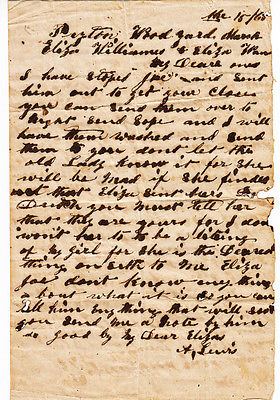 Mc 15/65
Peyton Wood yard March
Eliza Williames & Eliza
My Deare ones
I have stoped Joe and sent
him out to get your Close
you can send them over to
Night send Sope and I will
have them washed and send
them to you dont let the
old Lady know it for She
will be mad if she findes
out that Eliza sint hers
you must tell her
that they are yours for I
wont her to to be
of my girl for she is the Dearest
thing on Erth to Me Eliza
Joe dont know eny thing
a bout what it is so you can
tell him eny thing that will
you send me a note by him
do good by My Dear Elizas
A, Lewis